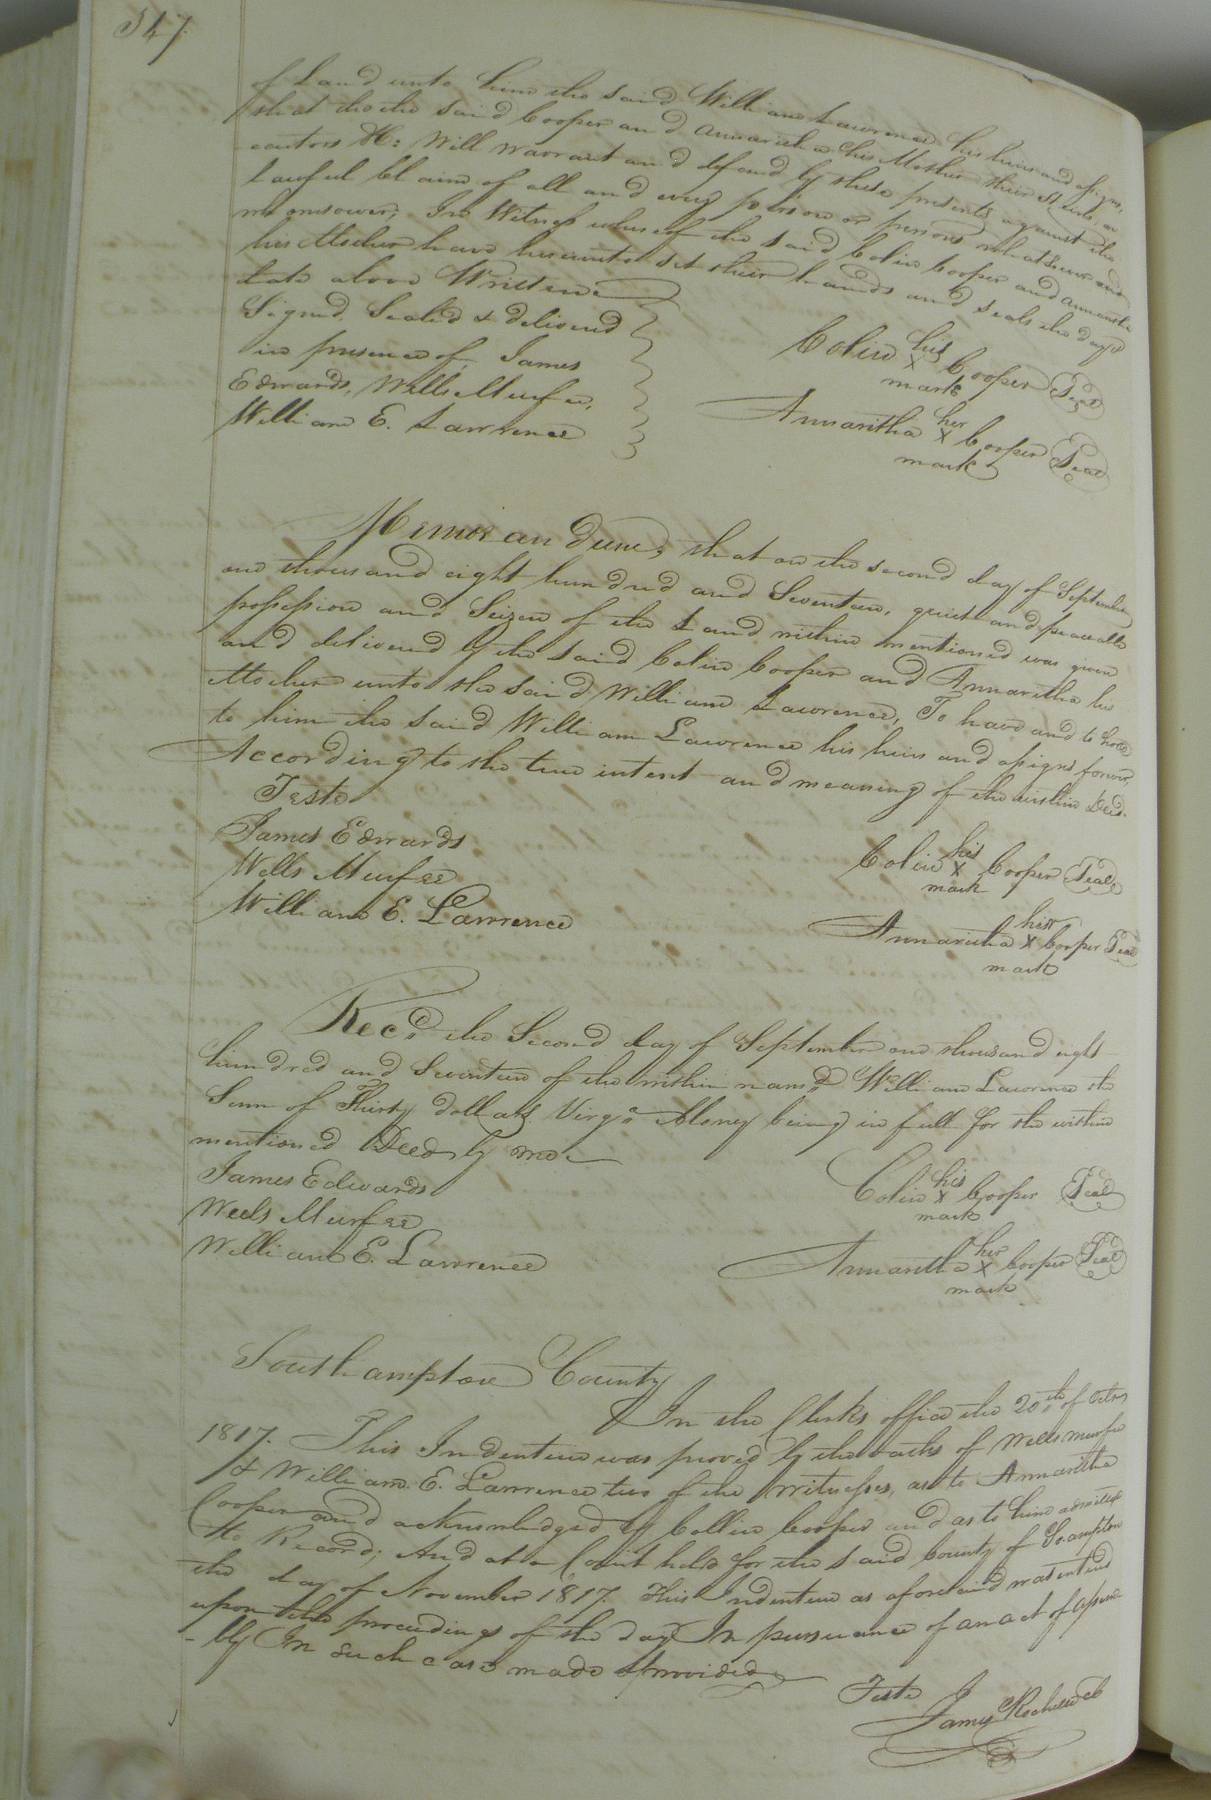 547
of Land unto him the said William Lawrence his heirs and assigns,
that tho the said Cooper and Annaritha his Mother their Heirs, ex
-ecutors &c: Will warrant and defend by these presents against the
lawful Claim of all and every person or persons whatsoever and
whomsoever, In Witness whereof the said Colin Cooper and Annaritha
his Mother have hereunto set their hands and seals the day &
date above Written
Signed Sealed & delivered
in presence of, James
Edwards, Wells Murfee,
William E. Lawrence
Colin his X mark Cooper Seal
Annaritha her X mark Cooper Seal
Memorandum, that on the second day of September
one thousand eight hundred and Seventeen, quiet and peaceable
possession and Seizen of the Land within mentioned was given
and delivered by the said Colin Cooper and Annaritha his
Mother unto the said William Lawrence, To have and to hold
to him the said William Lawrence his heirs and assigns forever,
According to the true intent and meaning of the within Deed.
Teste
James Edwards
Wells Murfee
William E. Lawrence
Colin his X mark Cooper Seal
Annaritha his X mark Cooper Seal
Recd. the Second day of September one thousand eight
hundred and Seventeen of the within named William Lawrence the
Sum of Thirty dollars Virga. Money being in full for the within
mentioned Deed by me
James Edwards
Wells Murfee
William E. Lawrence
Colin his X mark Cooper Seal
Annaritha her X mark Cooper Seal
Southampton County
In the Clerks office the 20th of Octor.
1817. This Indenture was proved by the oaths of Wells Murfee
& William E. Lawrence two of the Witnesses, as to Annaritha
Cooper and acknowledged by Collin Cooper and as to him admitted
to Record; And at a Court held for the said County of So.ampton
the day of November 1817. This Indenture as aforesaid was entered
upon the proceedings of the day In pursuance of an act of assem
-bly In such case made & provided
Teste
James Rochelle CC